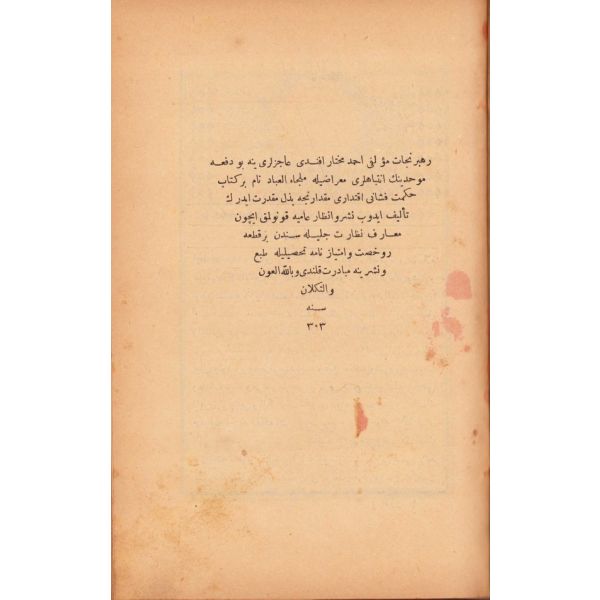 رهبر نجات مؤلفی احمد مختار افندی عاجزلری ینه بو دفعه
موحدینك انتباهلری معراضیله ملجاء العباد نام بر كتاب
حكمت فشانی اقتداری مقدارنجه بذل مقدرت ایدرك
تألیف ایدوب نشر و انظار عامیه قونولمق ایچون
معارف نظارت جلیله سندن بر قطعه
روخصت و امتیاز نامه تحصیلیله طبع
و نشرینه مبادرت قلندی و بالله العون
والتكلان
سنه
٣٠٣